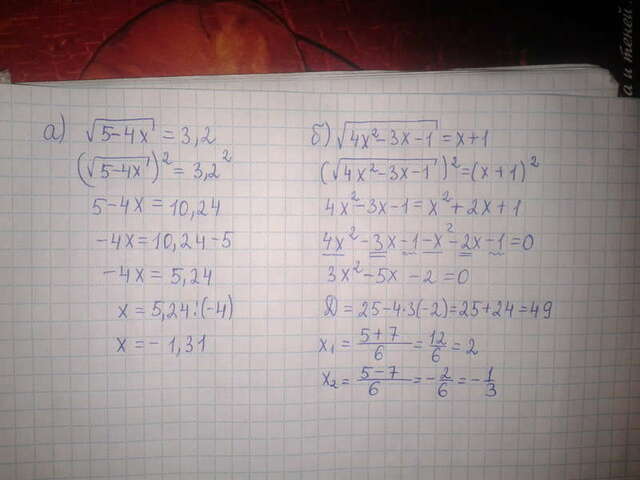 а) √(5-4x) = 3,2
(√(5-4x))² = 3,2²
5-4x = 10,24
-4x = 10,24-5
-4x = 5,24
x = 5,24:(-4)
x = -1,31
б) √(4x²-3x-1) = x+1
(√(4x²-3x-1))² = (x+1)²
4x²-3x-1 = x²+2x+1
4x²-3x-1-x²-2x-1=0
3x²-5x-2=0
Д = 25-4·3(-2)=25+24=49
x₁ = (5+7)/6 = 12/6 = 2
x₂ = (5-7)/6 = -2/6 = -1/3